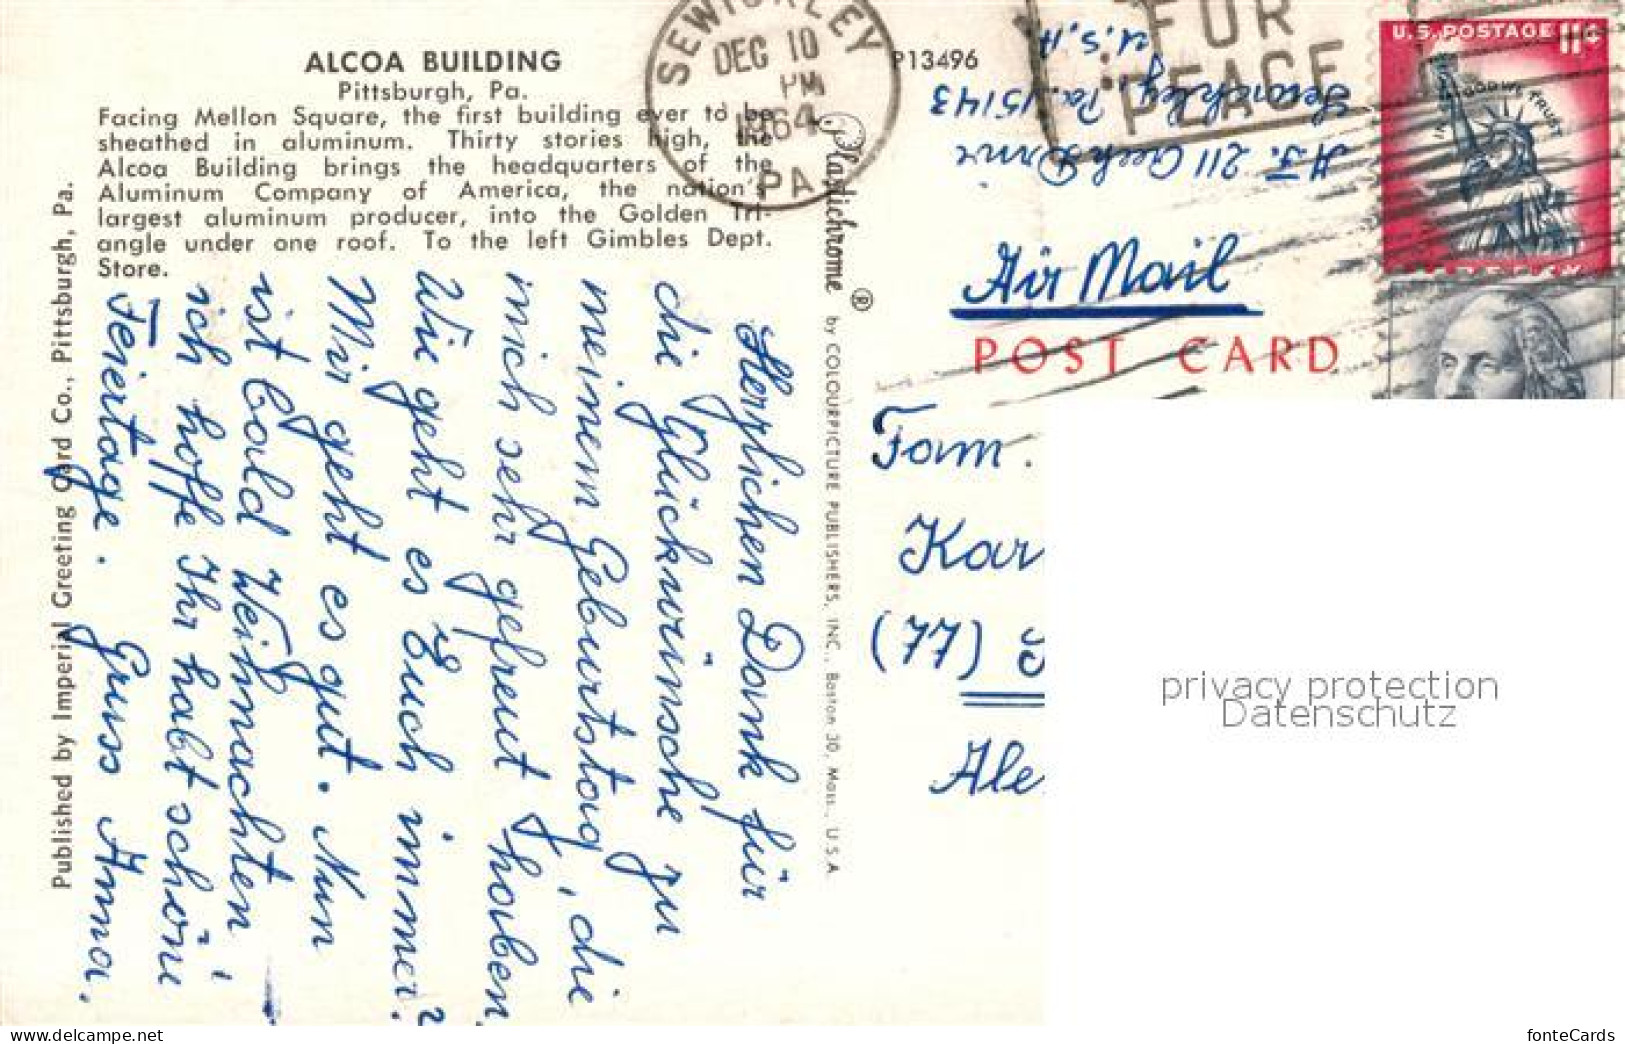 ALCOA BUILDING
Pittsburgh, Pa.
Facing Mellon Square, the first building ever to be
sheathed in aluminum. Thirty stories high, the
Alcoa Building brings the headquarters of the
Aluminum Company of America, the nation's
largest aluminum producer, into the Golden Tri-
angle under one roof. To the left Gimbles Dept.
Store.
Published by Imperial Greeting Card Co., Pittsburgh, Pa.
Herzlichen Dank für
die Glückwünsche zu
meinem Geburtstag, die
mich sehr gefreut haben.
Wie geht es Euch immer?
Mir geht es gut. Nun
ist bald Weihnachten,
ich hoffe Ihr habt schöne
Feiertage. Gruss Anna.
Plastichrome ® by COLOURPICTURE PUBLISHERS, INC., Boston 30, Mass., U.S.A
SEWICKLEY
DEC 10
PM
1964
PA
P13496
FOR
PEACE
211 Creek Drive
Sewickley, Pa. 15143
U.S.A
U.S. POSTAGE 11¢
IN GOD WE TRUST
Air Mail
POST CARD
Fam.
Kar
(77) S
Ale
privacy protection
Datenschutz
fonteCards